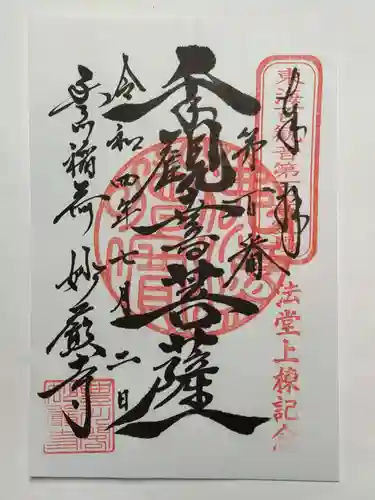 奉拝
東海百観音第一
法堂上棟記念
第一番
千手観音菩薩
令和四年七月二日
豊川稲荷 妙厳寺